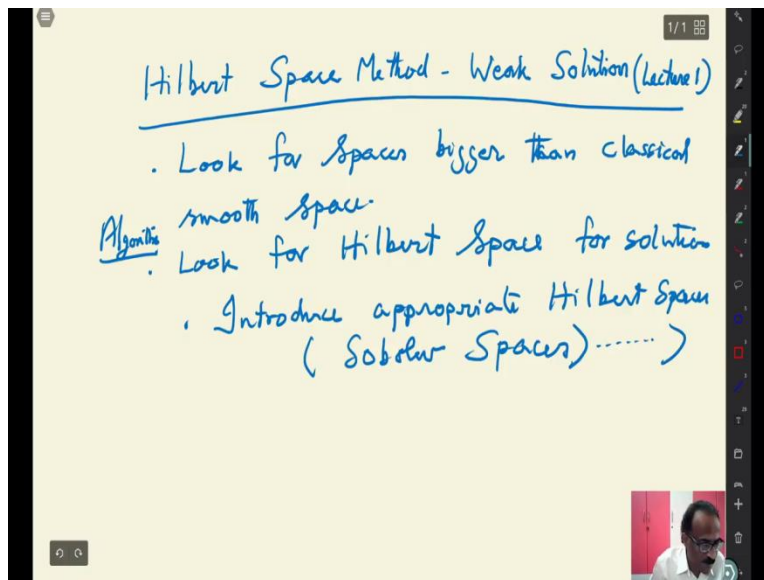 1/1
Hilbert Space Method - Weak Solution (Lecture 1)
. Look for spaces bigger than classical
smooth space.
Algorithm
. Look for Hilbert Space for solution
. Introduce appropriate Hilbert Spaces
( Sobolev Spaces) ...... )